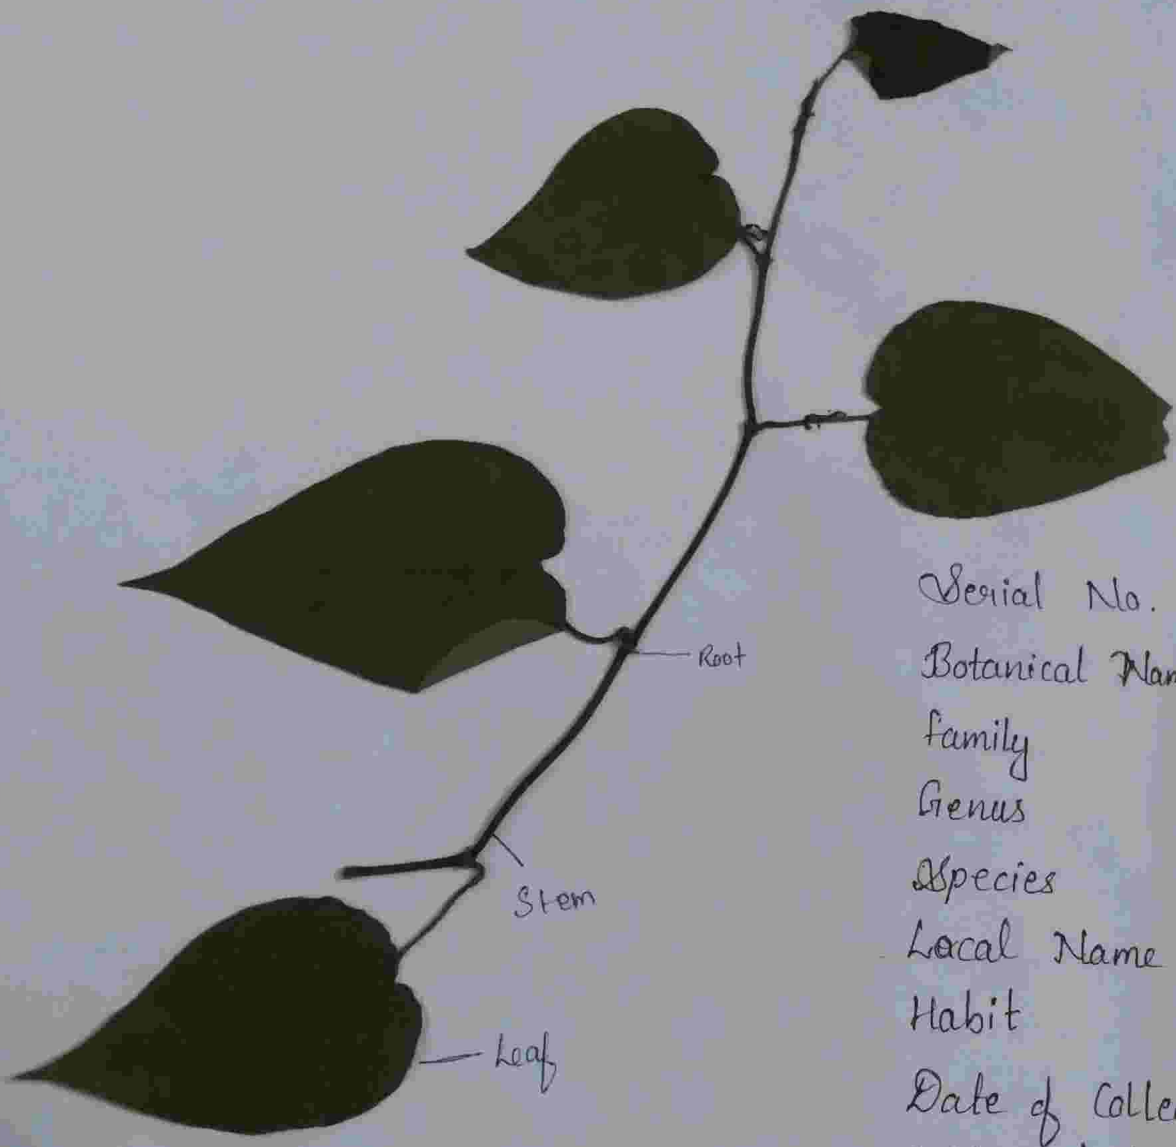 Root
Stem
Leaf
Serial No.
Botanical Nam
family
Genus
Species
Local Name
Habit
Date of Colle